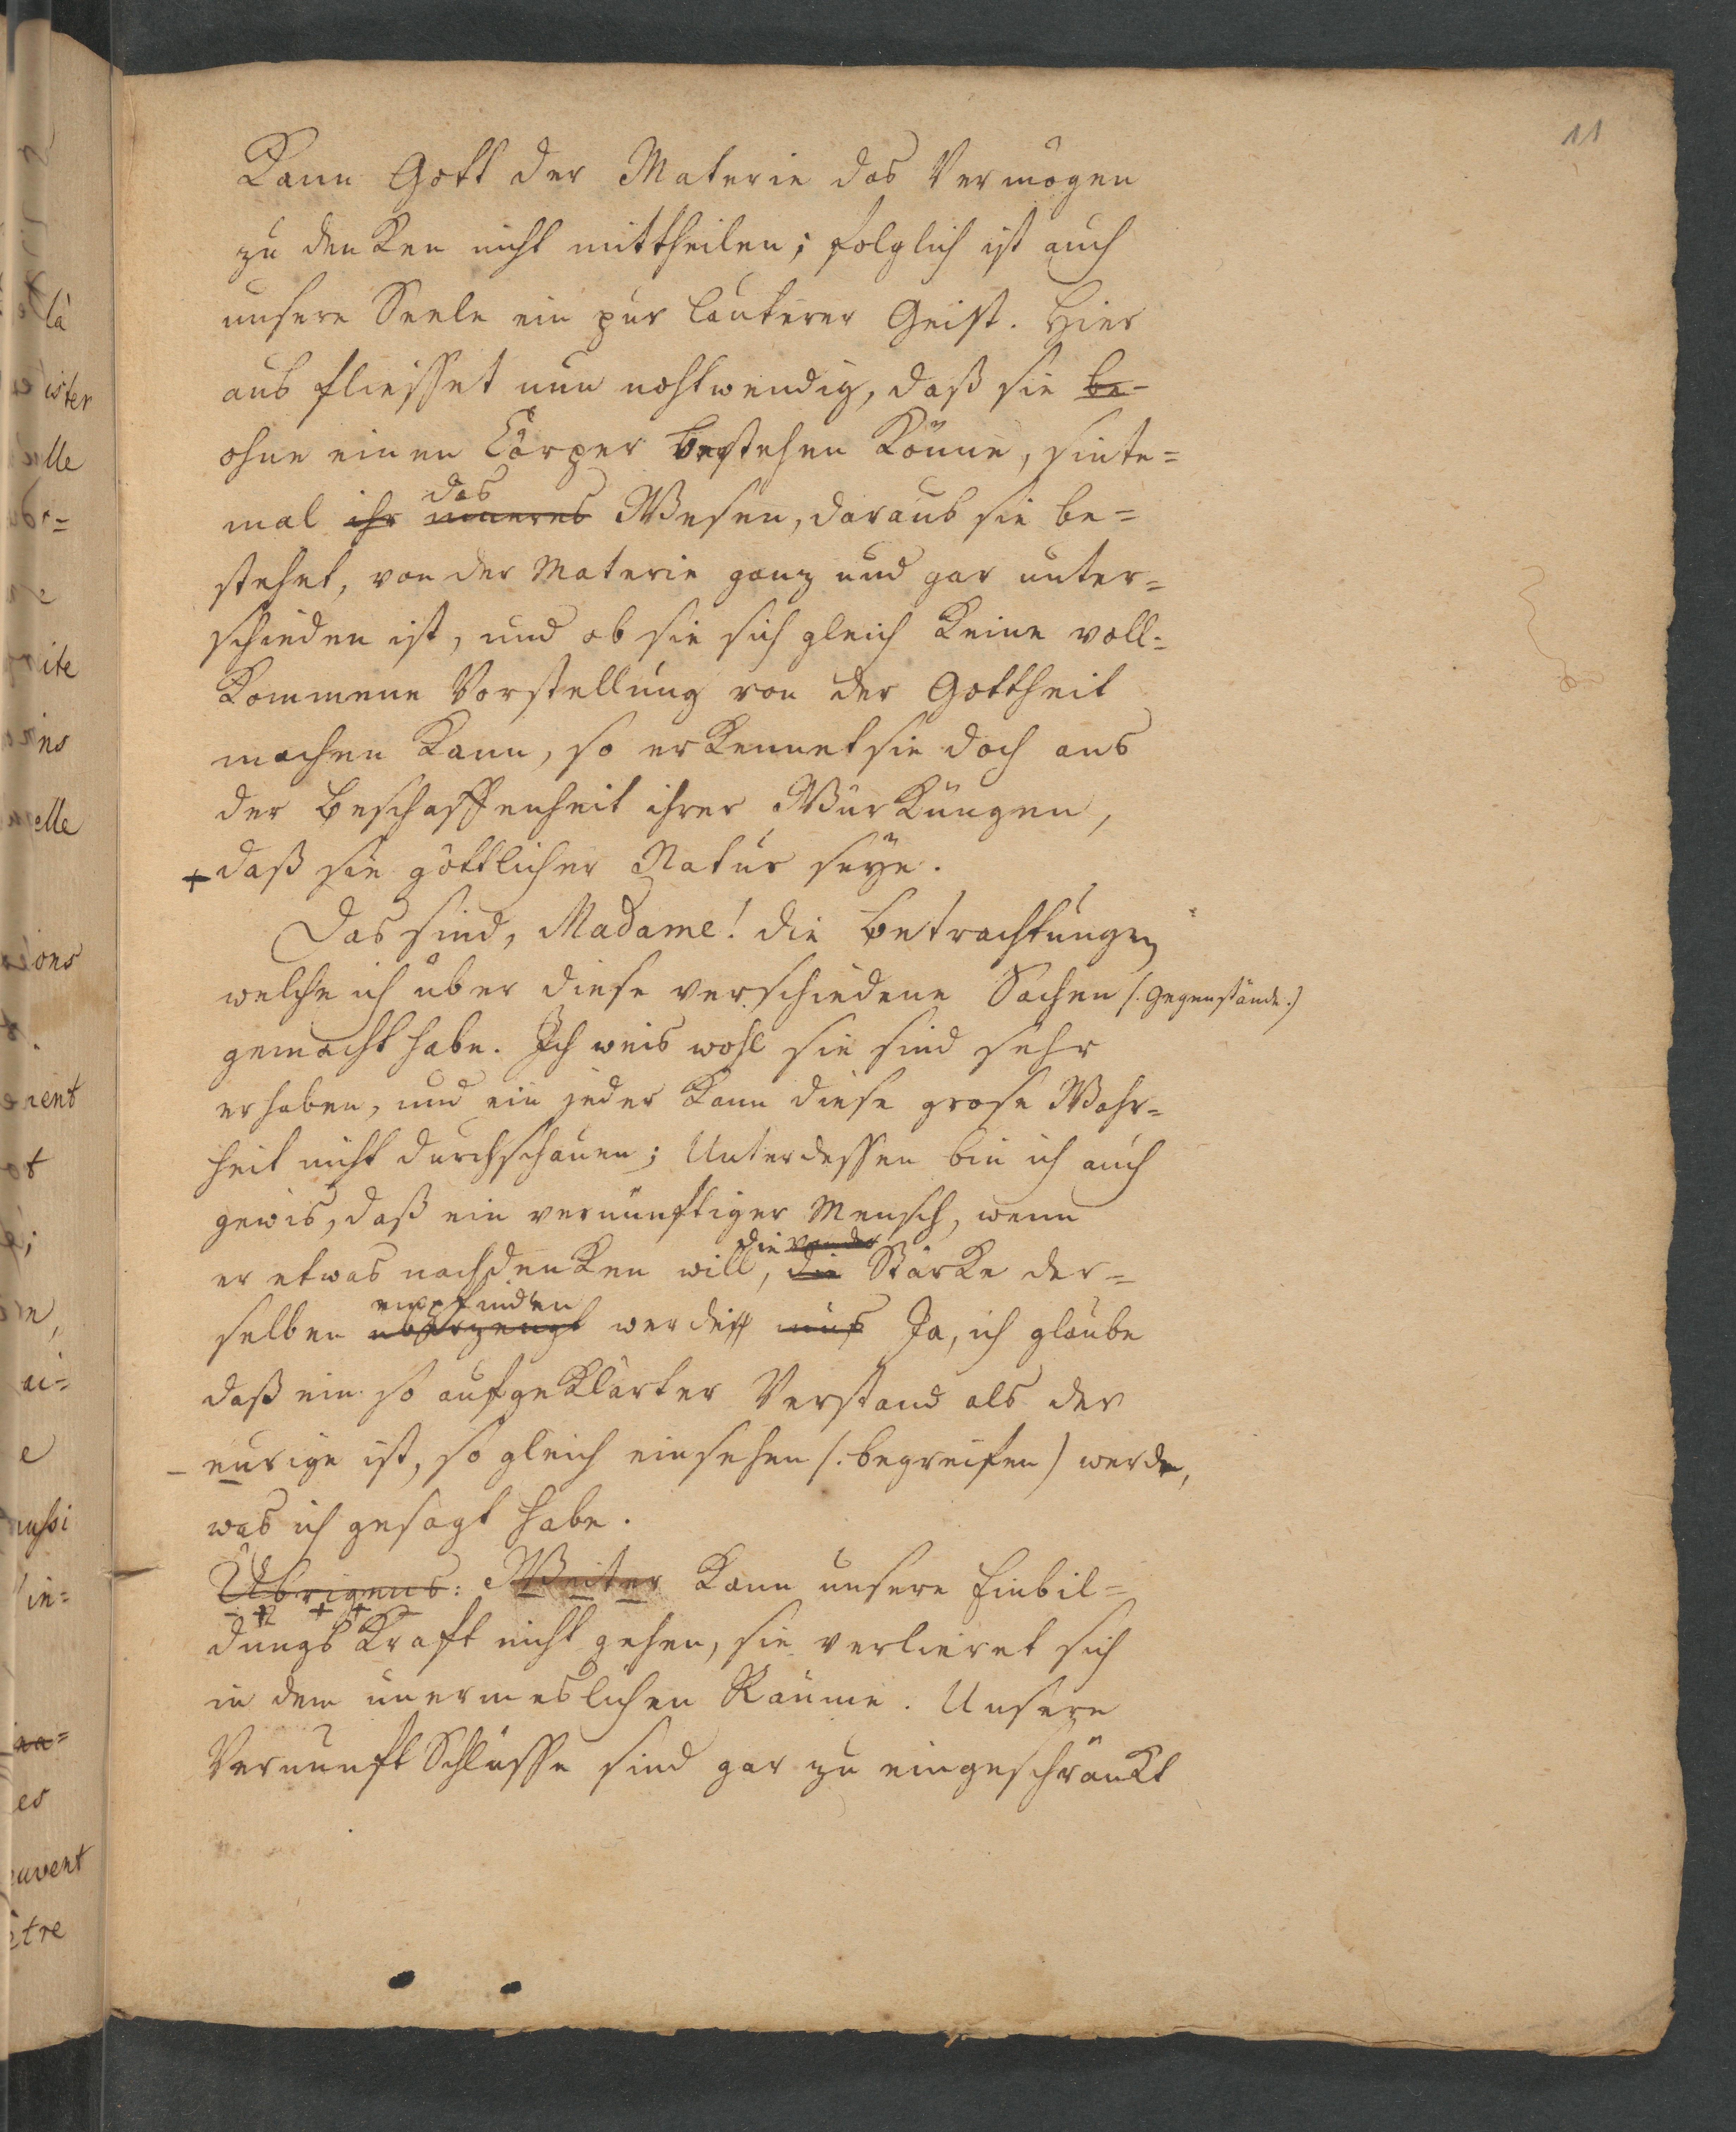 11
Kann Gott der Materie das Vermögen
zu denken nicht mittheilen; folglich ist auch
unsere Seele ein pur lauterer Geist. Hier
aus fliesset nun nohtwendig, daß sie be-
ohne einen Cörper bestehen könne, sinte=
das
mal ihr inneres Wesen, daraus sie be=
stehet, von der Materie ganz und gar unter=
schieden ist, und ob sie sich gleich keine voll=
kommene Vorstellung von der Gottheit
machen kann, so erkennet sie doch aus
der Beschaffenheit ihrer Würkungen,
+ daß sie göttlicher Natur seye.
Das sind, Madame! die Betrachtungen
welche ich über diese verschiedene Sachen (: Gegenstände :)
gemacht habe. Ich weis wohl sie sind sehr
erhaben, und ein jeder kann diese grose Wahr=
heit nicht durchschauen; Unterdessen bin ich auch
gewis, daß ein vernünftiger Mensch, wenn
die von der
er etwas nachdenken will, die Stärke der=
empfinden
selben überzeugt werden mus Ja, ich glaube
daß ein so aufgeklärter Verstand als der
– eurige ist, so gleich einsehen (: begreifen) werde,
was ich gesagt habe.
Übrigens: Weiter kann unsere Einbil=
dungs Kraft nicht gehen, sie verlieret sich
in dem unermeslichen Raume. Unsere
Vernunft Schlüsse sind gar zu eingeschränkt
là
ister
lle
ite
ins
elle
ions
rent
t
ai=
e
aussi
in=
es
euvent
être